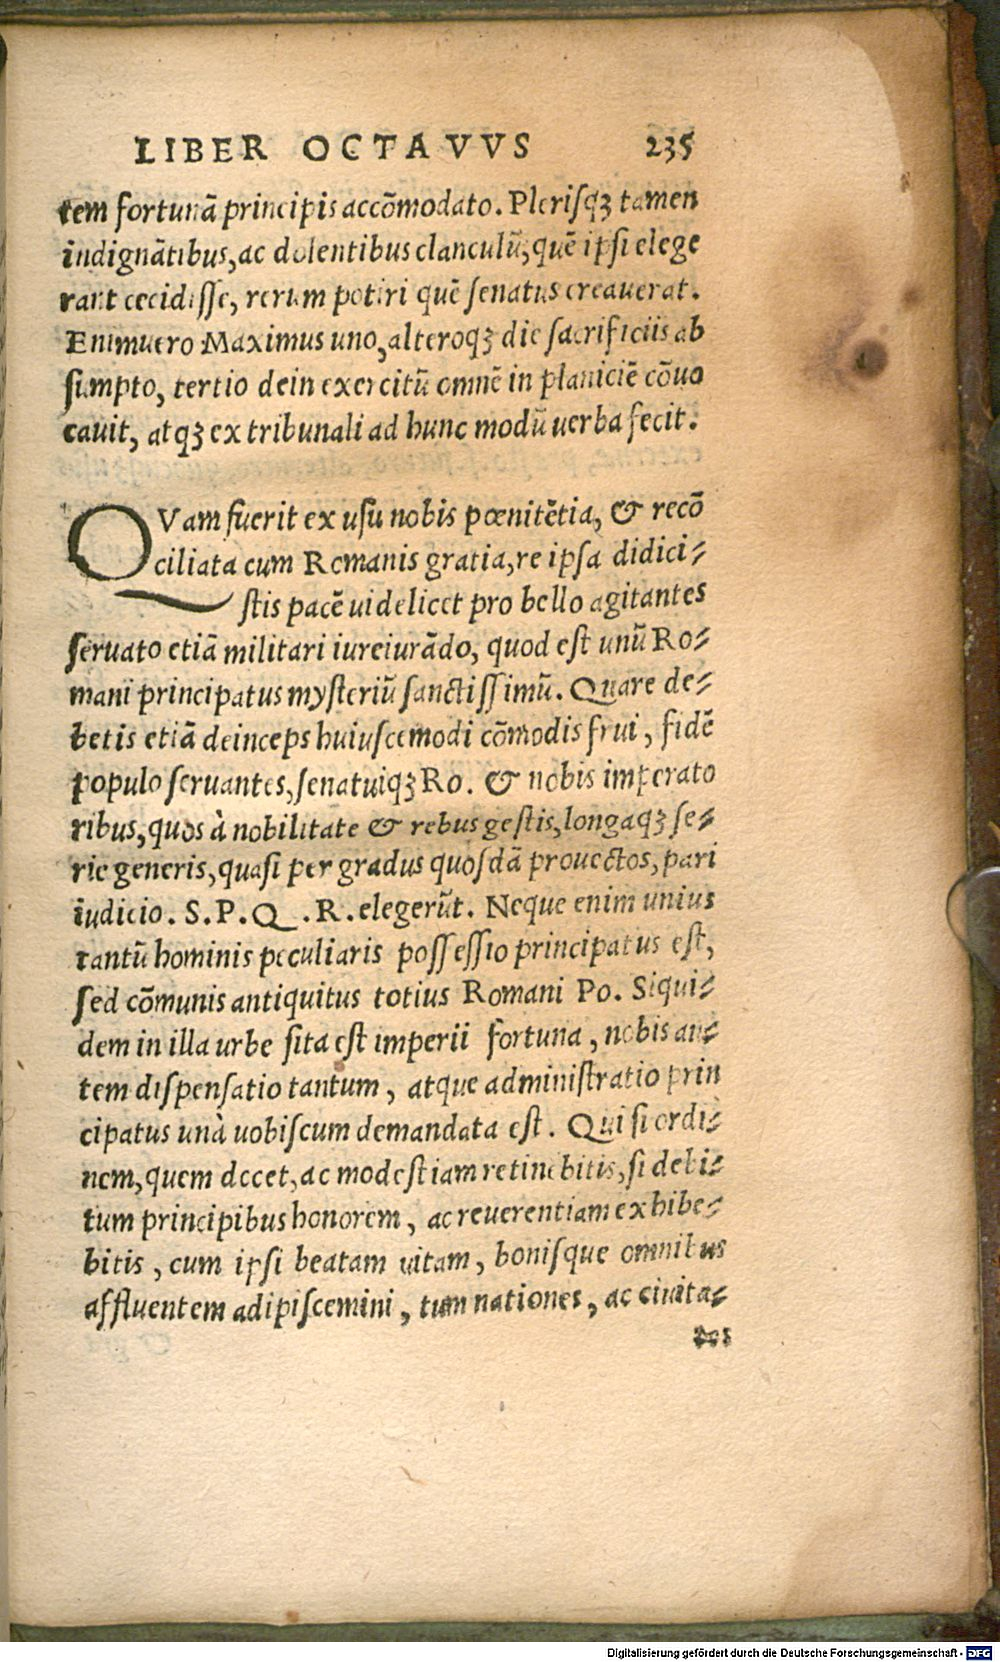 LIBER OCTAVVS 235
tem fortunā principis accōmodato. Plerisqꝫ tamen
indignātibus, ac dolentibus clanculū, quē ipsi elege
rant cecidisse, rerum potiri quē senatus creauerat.
Enimuero Maximus uno, alteroqꝫ die sacrificiis ab
sumpto, tertio dein exercitū omnē in planiciē cōuo
cauit, atqꝫ ex tribunali ad hunc modū uerba fecit.
QVam fuerit ex usu nobis pœnitētia, & recō
ciliata cum Romanis gratia, re ipsa didici-
stis pacē uidelicet pro bello agitantes
seruato etiā militari iureiurādo, quod est unū Ro-
mani principatus mysteriū sanctissimū. Quare de-
betis etiā deinceps huiuscemodi cōmodis frui, fidē
populo seruantes, senatuiqꝫ Ro. & nobis imperato
ribus, quos à nobilitate & rebus gestis, longaqꝫ se-
rie generis, quasi per gradus quosdā prouectos, pari
iudicio. S.P.Q.R. elegerūt. Neque enim unius
tantū hominis peculiaris possessio principatus est,
sed cōmunis antiquitus totius Romani Po. Siqui-
dem in illa urbe sita est imperii fortuna, nobis au-
tem dispensatio tantum, atque administratio prin
cipatus unà uobiscum demandata est. Qui si ordi-
nem, quem decet, ac modestiam retinebitis, si debi-
tum principibus honorem, ac reuerentiam exhibe-
bitis, cum ipsi beatam uitam, bonisque omnibus
affluentem adipiscemini, tum nationes, ac ciuita-
tes
Digitalisierung gefördert durch die Deutsche Forschungsgemeinschaft - DFG